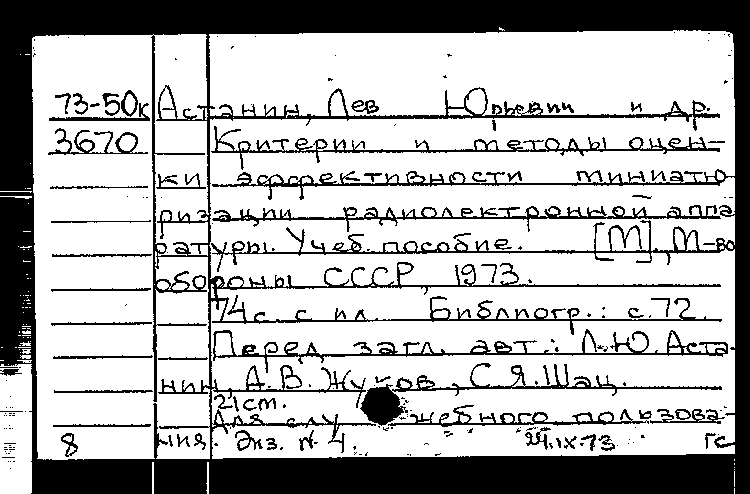 73-50к Астанин, Лев Юрьевич и др.
3670 Критерии и методы оцен-
ки эффективности миниатю
ризации радиолектронной аппа
ратуры. Учеб. пособие. [М], М-во
обороны СССР, 1973.
74 с. с ил. Библиогр.: с. 72.
Перед загл. авт.: Л.Ю. Аста-
нин, А.В. Жуков, С.Я. Шац.
21 cm.
Для служебного пользова-
8 ния. Экз. № 4. 24.IX-73 гс